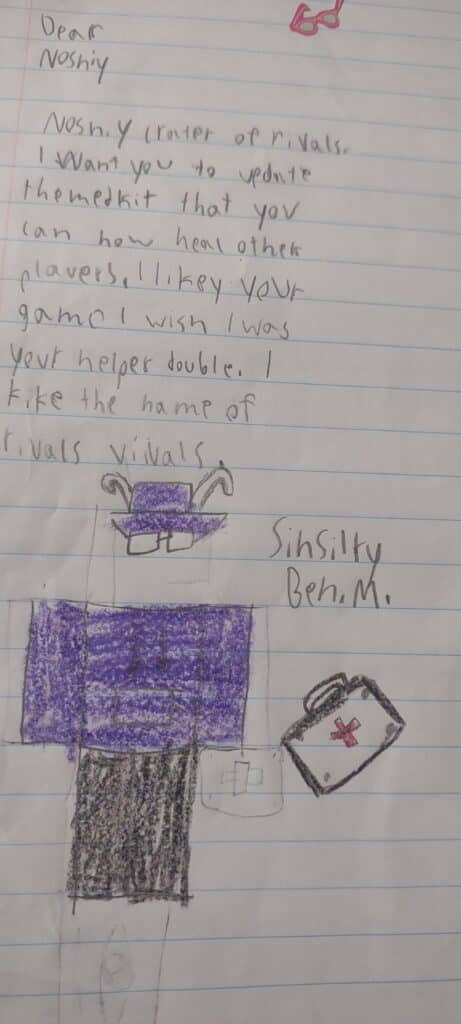 Dear
Noshiy
Noshiy crater of rivals.
I want you to update
the medkit that you
can now heal other
players, I likey your
game I wish I was
your helper double. I
kike the name of
rivals viivals.
Sinsilty
Ben.M.